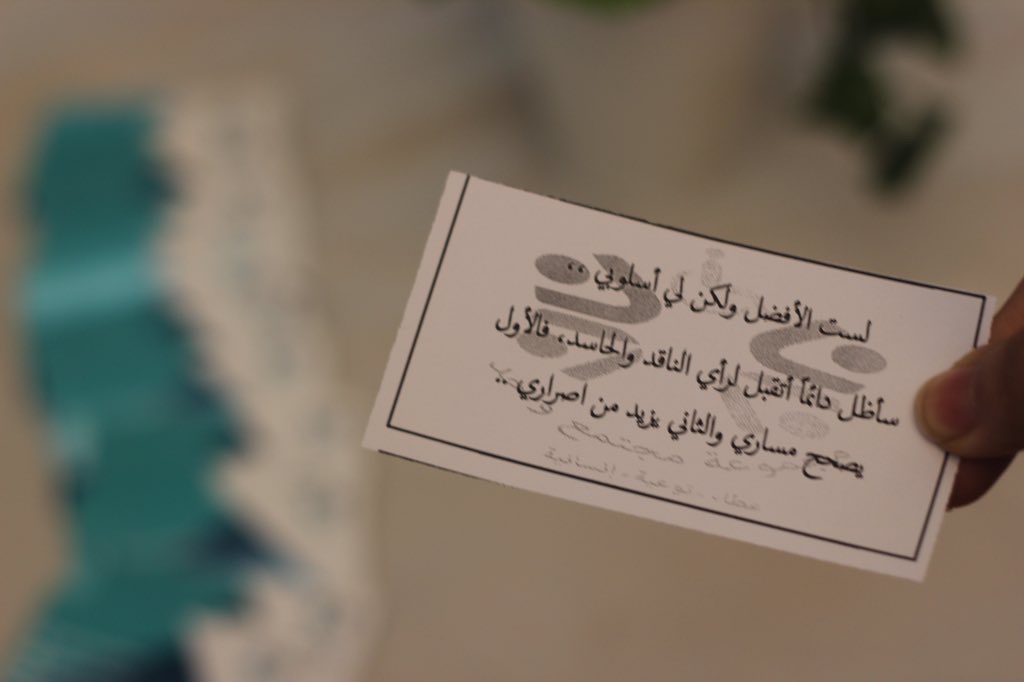 لست الأفضل ولكن لي أسلوبي ..
سأظل دائماً أتقبل لرأي الناقد والحاسد، فالأول
يصحح مساري والثاني يزيد من اصراري ..
مجموعة مجتمع
عطاء - توعية - إنسانية